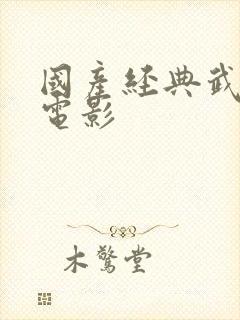 國產經典武
電影
木驚堂